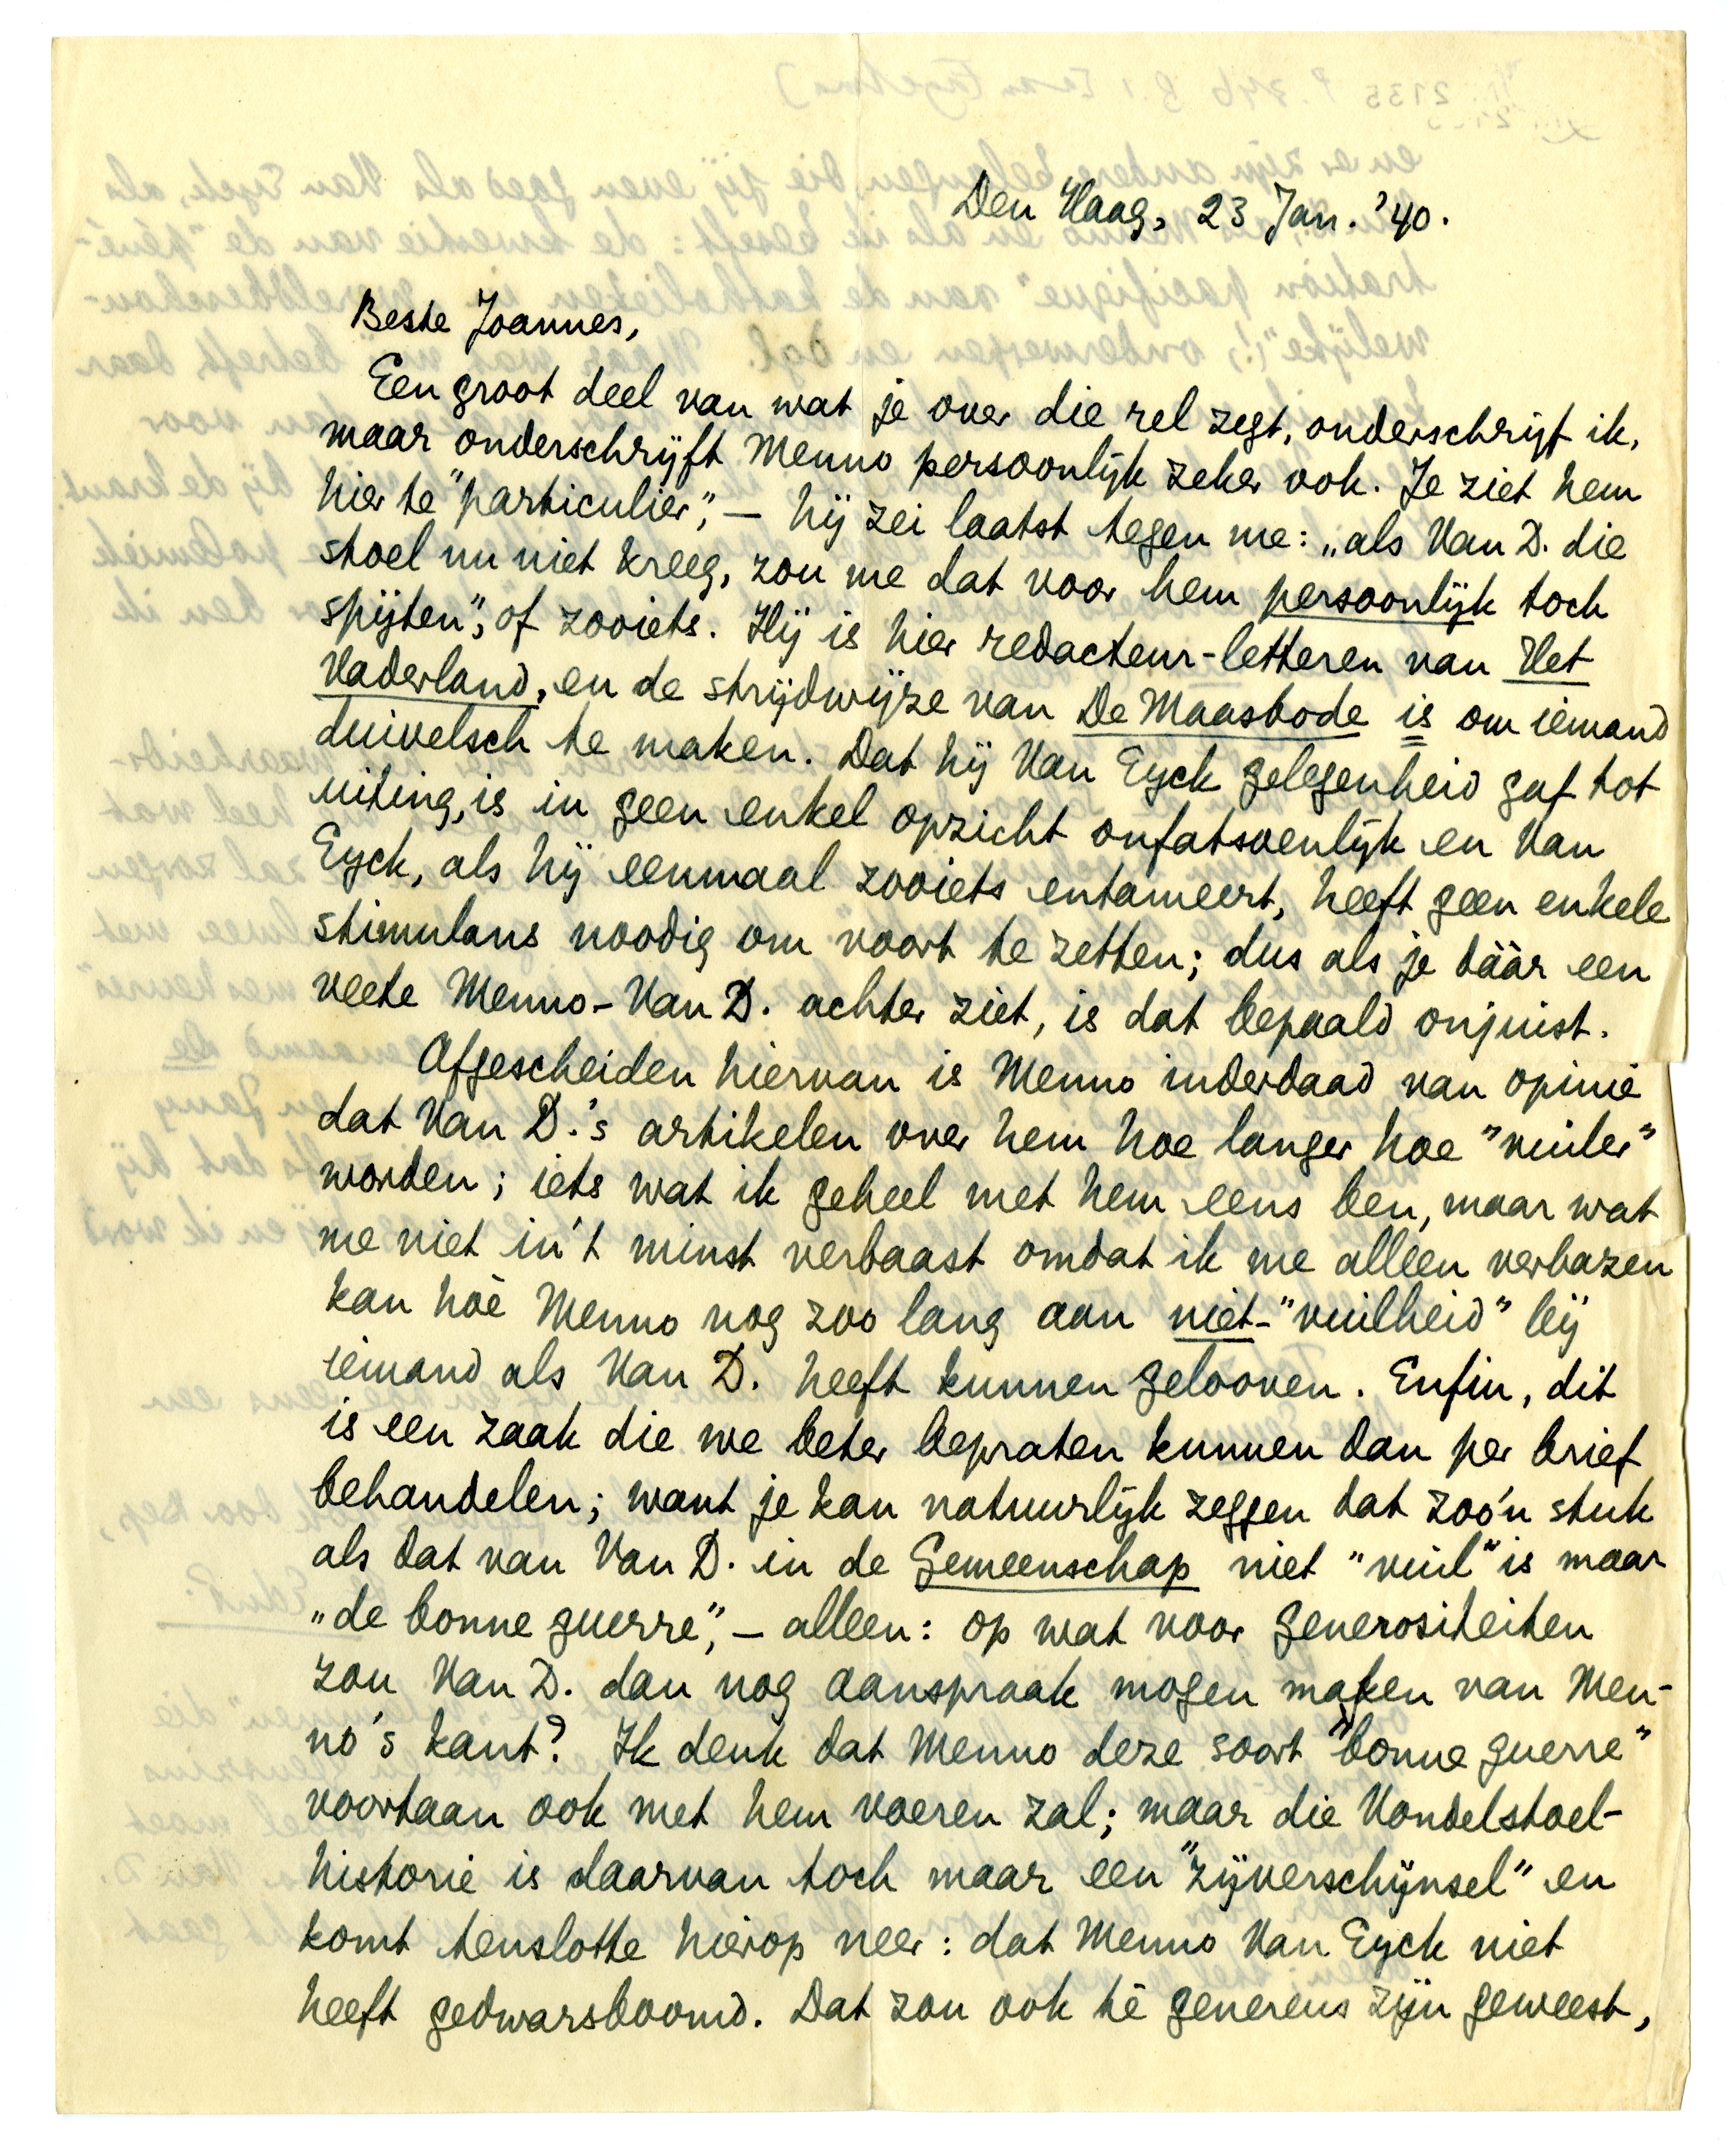 Den Haag, 23 Jan. '40.
Beste Joannes,
Een groot deel van wat je over die rel zegt, onderschrijf ik,
maar onderschrijft Menno persoonlijk zeker ook. Je ziet hem
hier te "particulier", — hij zei laatst tegen me: „als Van D. die
stoel nu niet kreeg, zou me dat voor hem persoonlijk toch
spijten", of zooiets. Hij is hier redacteur-letteren van Het
Vaderland, en de strijdwijze van De Maasbode is om iemand
duivelsch te maken. Dat hij Van Eyck gelegenheid gaf tot
uiting, is in geen enkel opzicht onfatsoenlijk en Van
Eyck, als hij eenmaal zooiets entameert, heeft geen enkele
stimulans noodig om voort te zetten; dus als je dààr een
veete Menno-Van D. achter ziet, is dat bepaald onjuist.
Afgescheiden hiervan is Menno inderdaad van opinie
dat Van D.'s artikelen over hem hoe langer hoe "vuiler"
worden; iets wat ik geheel met hem eens ben, maar wat
me niet in 't minst verbaast omdat ik me alleen verbazen
kan hoè Menno nog zoo lang aan niet-"vuilheid" bij
iemand als Van D. heeft kunnen gelooven. Enfin, dit
is een zaak die we beter bepraten kunnen dan per brief
behandelen; want je kan natuurlijk zeggen dat zoo'n stuk
als dat van Van D. in de Gemeenschap niet "vuil" is maar
„de bonne guerre", — alleen: op wat voor generositeiten
zou Van D. dan nog aanspraak mogen maken van Men-
no's kant? Ik denk dat Menno deze soort "bonne guerre"
voortaan ook met hem voeren zal; maar die Vondelstoel-
historie is daarvan toch maar een "zijverschijnsel" en
komt tenslotte hierop neer: dat Menno Van Eyck niet
heeft gedwarsboomd. Dat zou ook tè genereus zijn geweest,